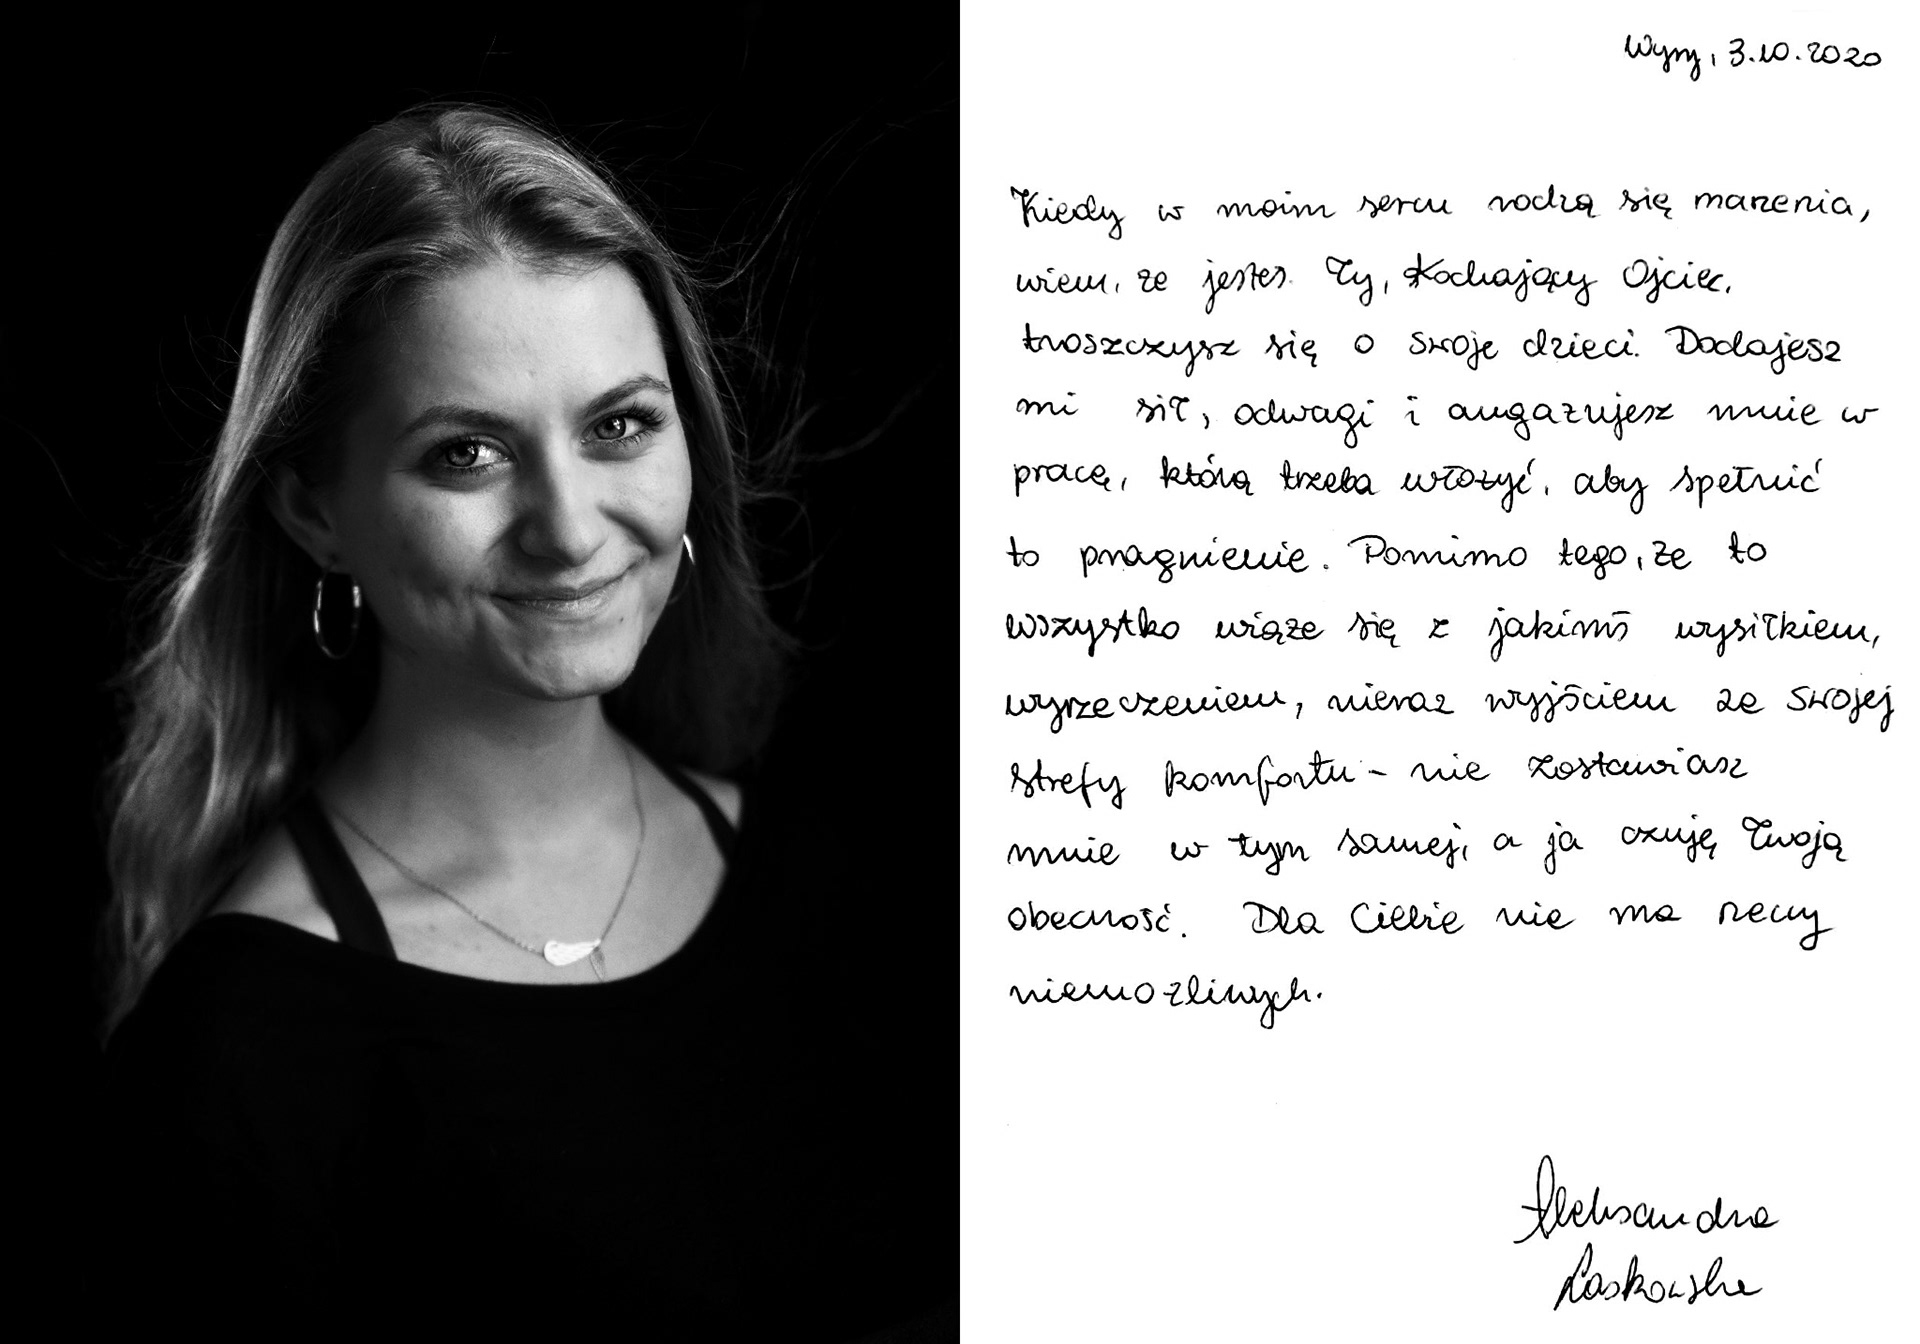 Wyry, 3.10.2020
Kiedy w moim sercu rodzą się marzenia,
wiem, że jesteś Ty, Kochający Ojciec,
troszczysz się o swoje dzieci. Dodajesz
mi sił, odwagi i angażujesz mnie w
pracę, którą trzeba włożyć, aby spełnić
to pragnienie. Pomimo tego, że to
wszystko wiąże się z jakimś wysiłkiem,
wyrzeczeniem, nieraz wyjściem ze swojej
strefy komfortu - nie zostawiasz
mnie w tym samej, a ja czuję Twoją
obecność. Dla Ciebie nie ma rzeczy
niemożliwych.
Aleksandra
Laskowska